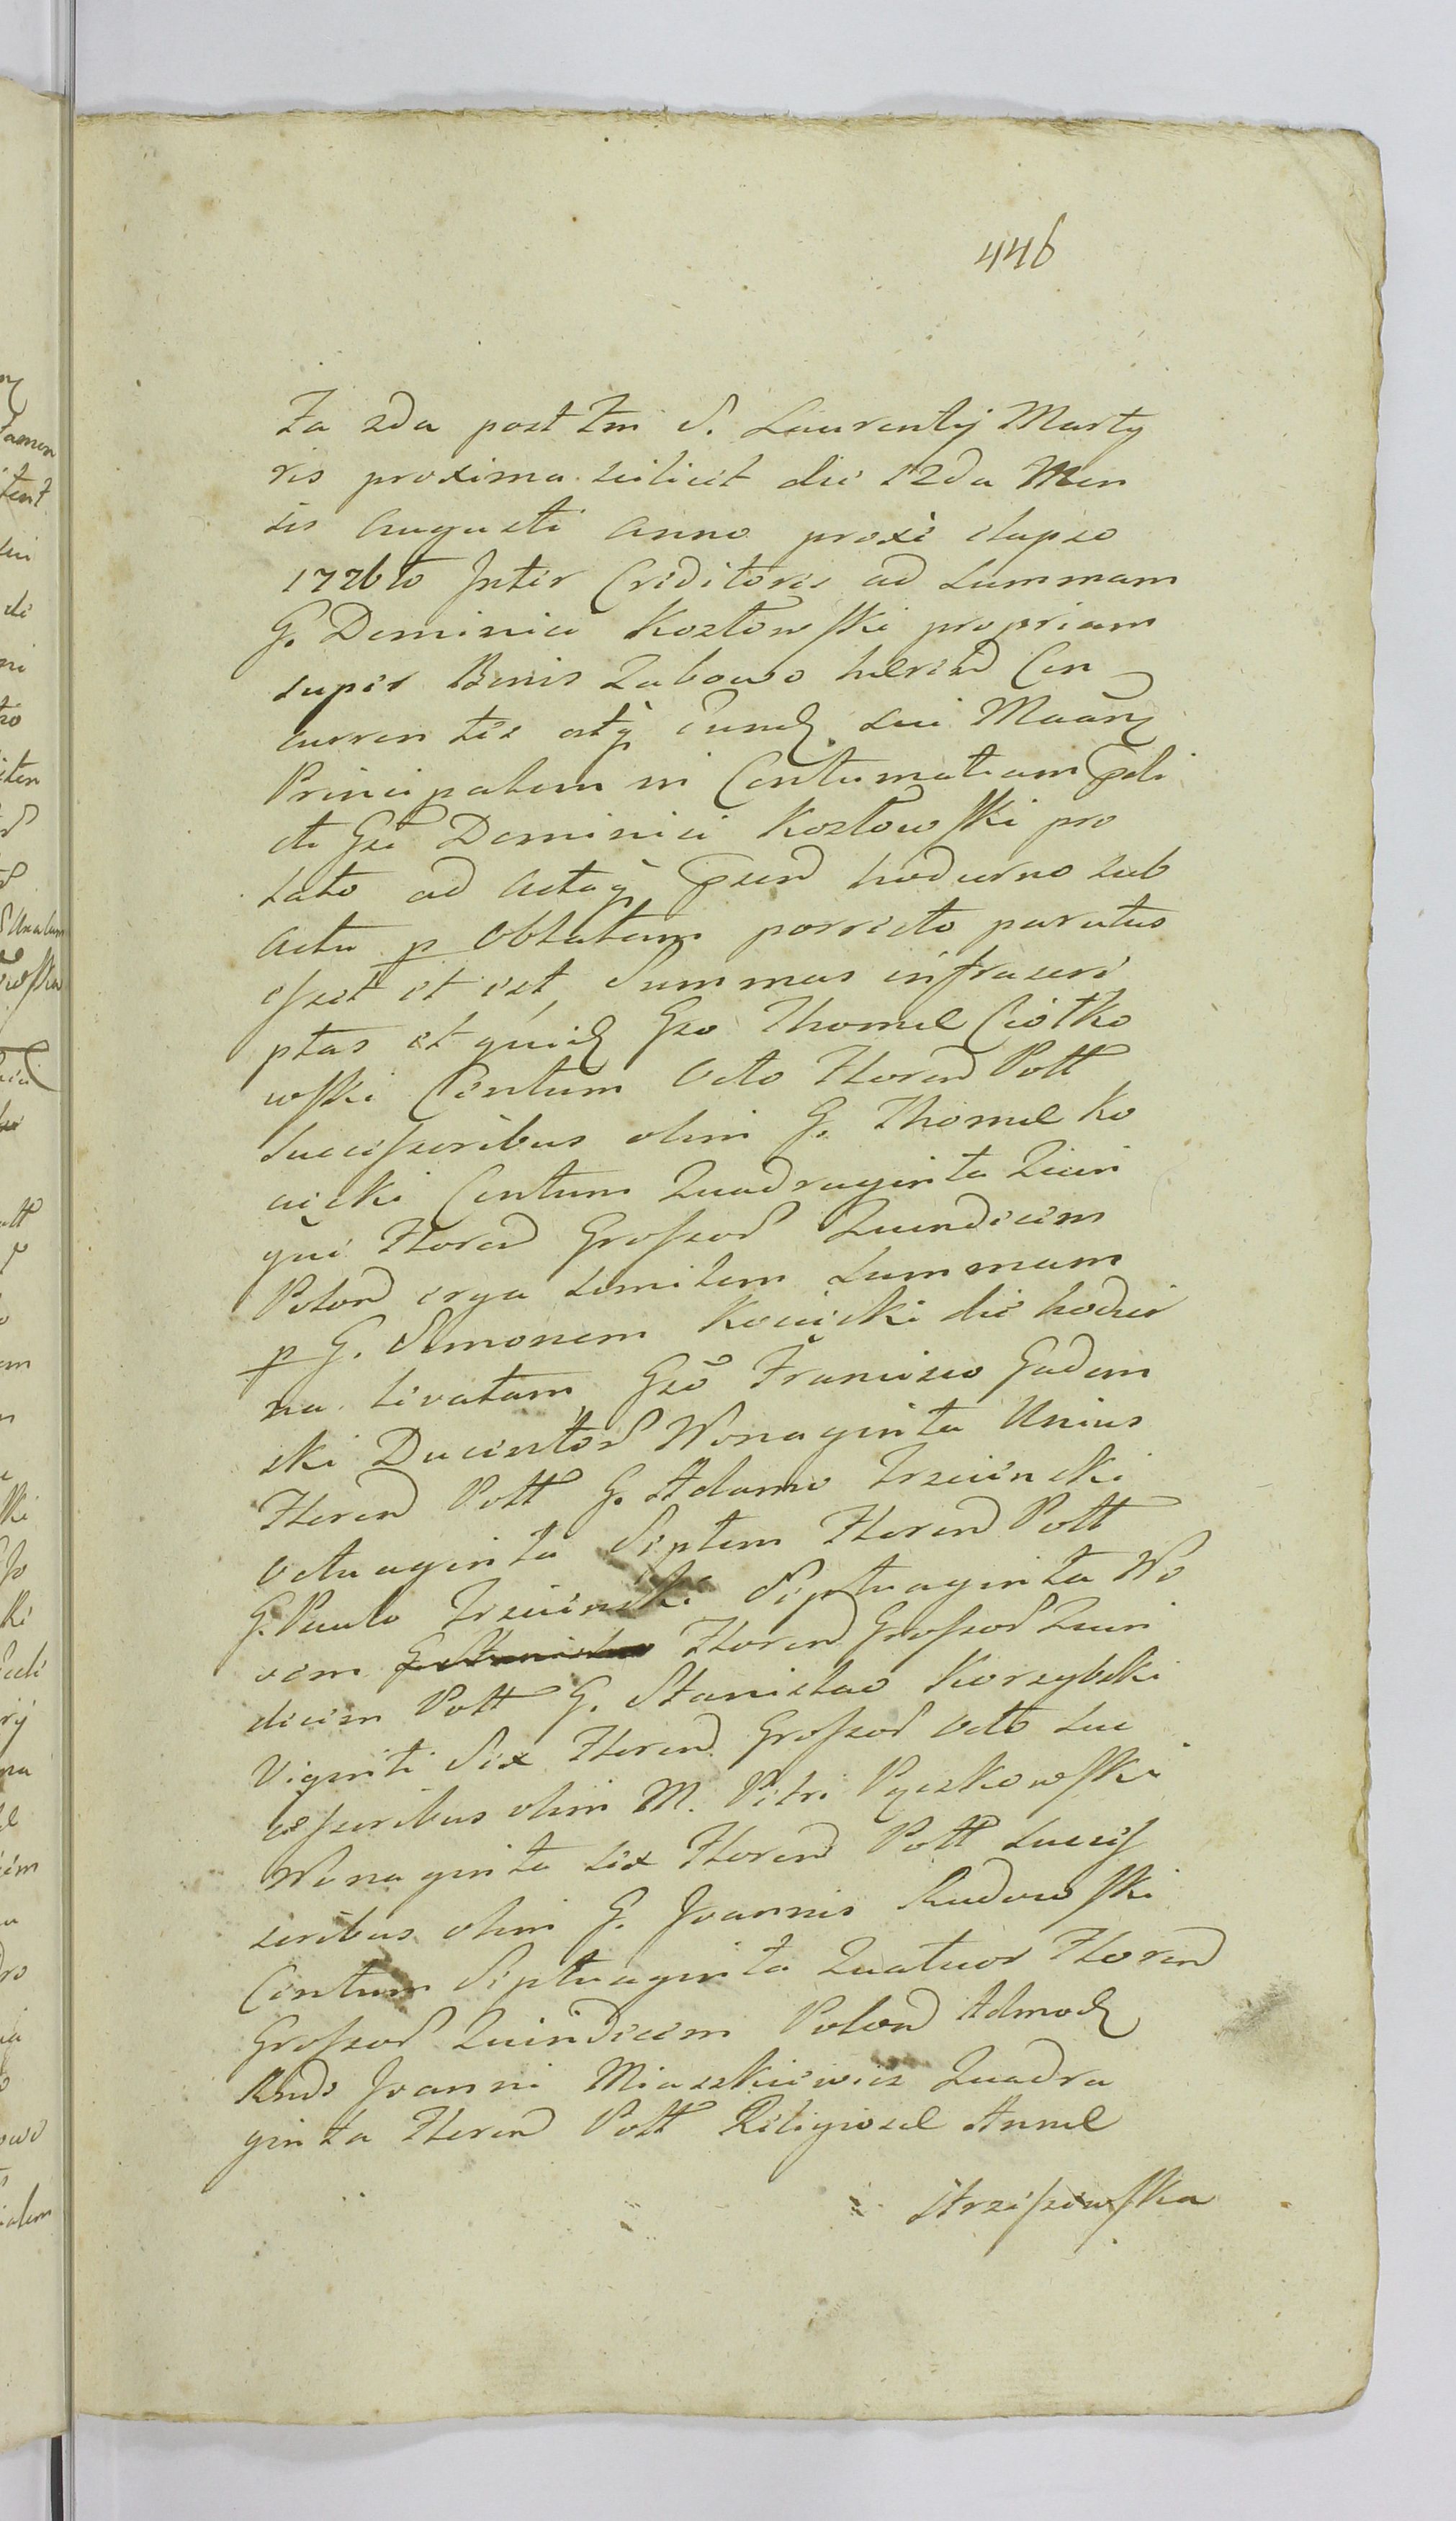 446
Fa 2da post Fm S. Laurentij Marty
ris proxima scilicet die 12da Men
sis Augusti Anno proxe elapso
1776to Inter Creditores ad Summam
G. Dominici Kozłowski propriam
super Bonis Zabowo hered Con
currentes atq eund sui
Principalem in Contumatiam
cti Gsi Dominici Kozłowski pro
lato ad Actaq hodierno sub
Actu p Oblatam porrecto paratus
esset et est Summas infrascri
ptas et quid Gso Thomæ Ciołko
wski Centum Octo Floren Poll
Successoribus olim G. Thomæ Ko
cicki Centum Quadraginta Quin
que Floren Grossor Quindecim
Polon erga similem Summam
p G. Simonem Kocicki die hodier
na levatam Gso Francisco Gadom
ski Ducentor Nonaginta Unius
Floren Poll G. Adamo Trzcinski
Octuaginta Septem Floren Poll
G. Paulo Trzcinski Septuaginta No
vem Floren Grossor Quin
decim Poll G. Stanislao Korzybski
Viginti Sex Floren Grossor Octo Suc
cessoribus olim M. Petri Pęczkowski
Nonaginta Sex Floren Poll Success
soribus olim G. Joannis Rudowski
Centum Septuaginta Quatuor Floren
Grossor Quindecim Polon Admod
Rndo Joanni Miaszkiewicz Quadra
ginta Floren Poll Religiosæ Annæ
Strzeszewska